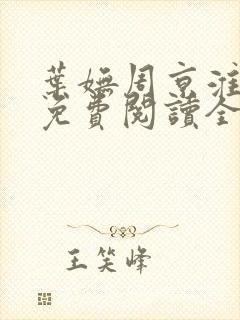 葉嫵周京淮
免費閱讀全
王笑峰